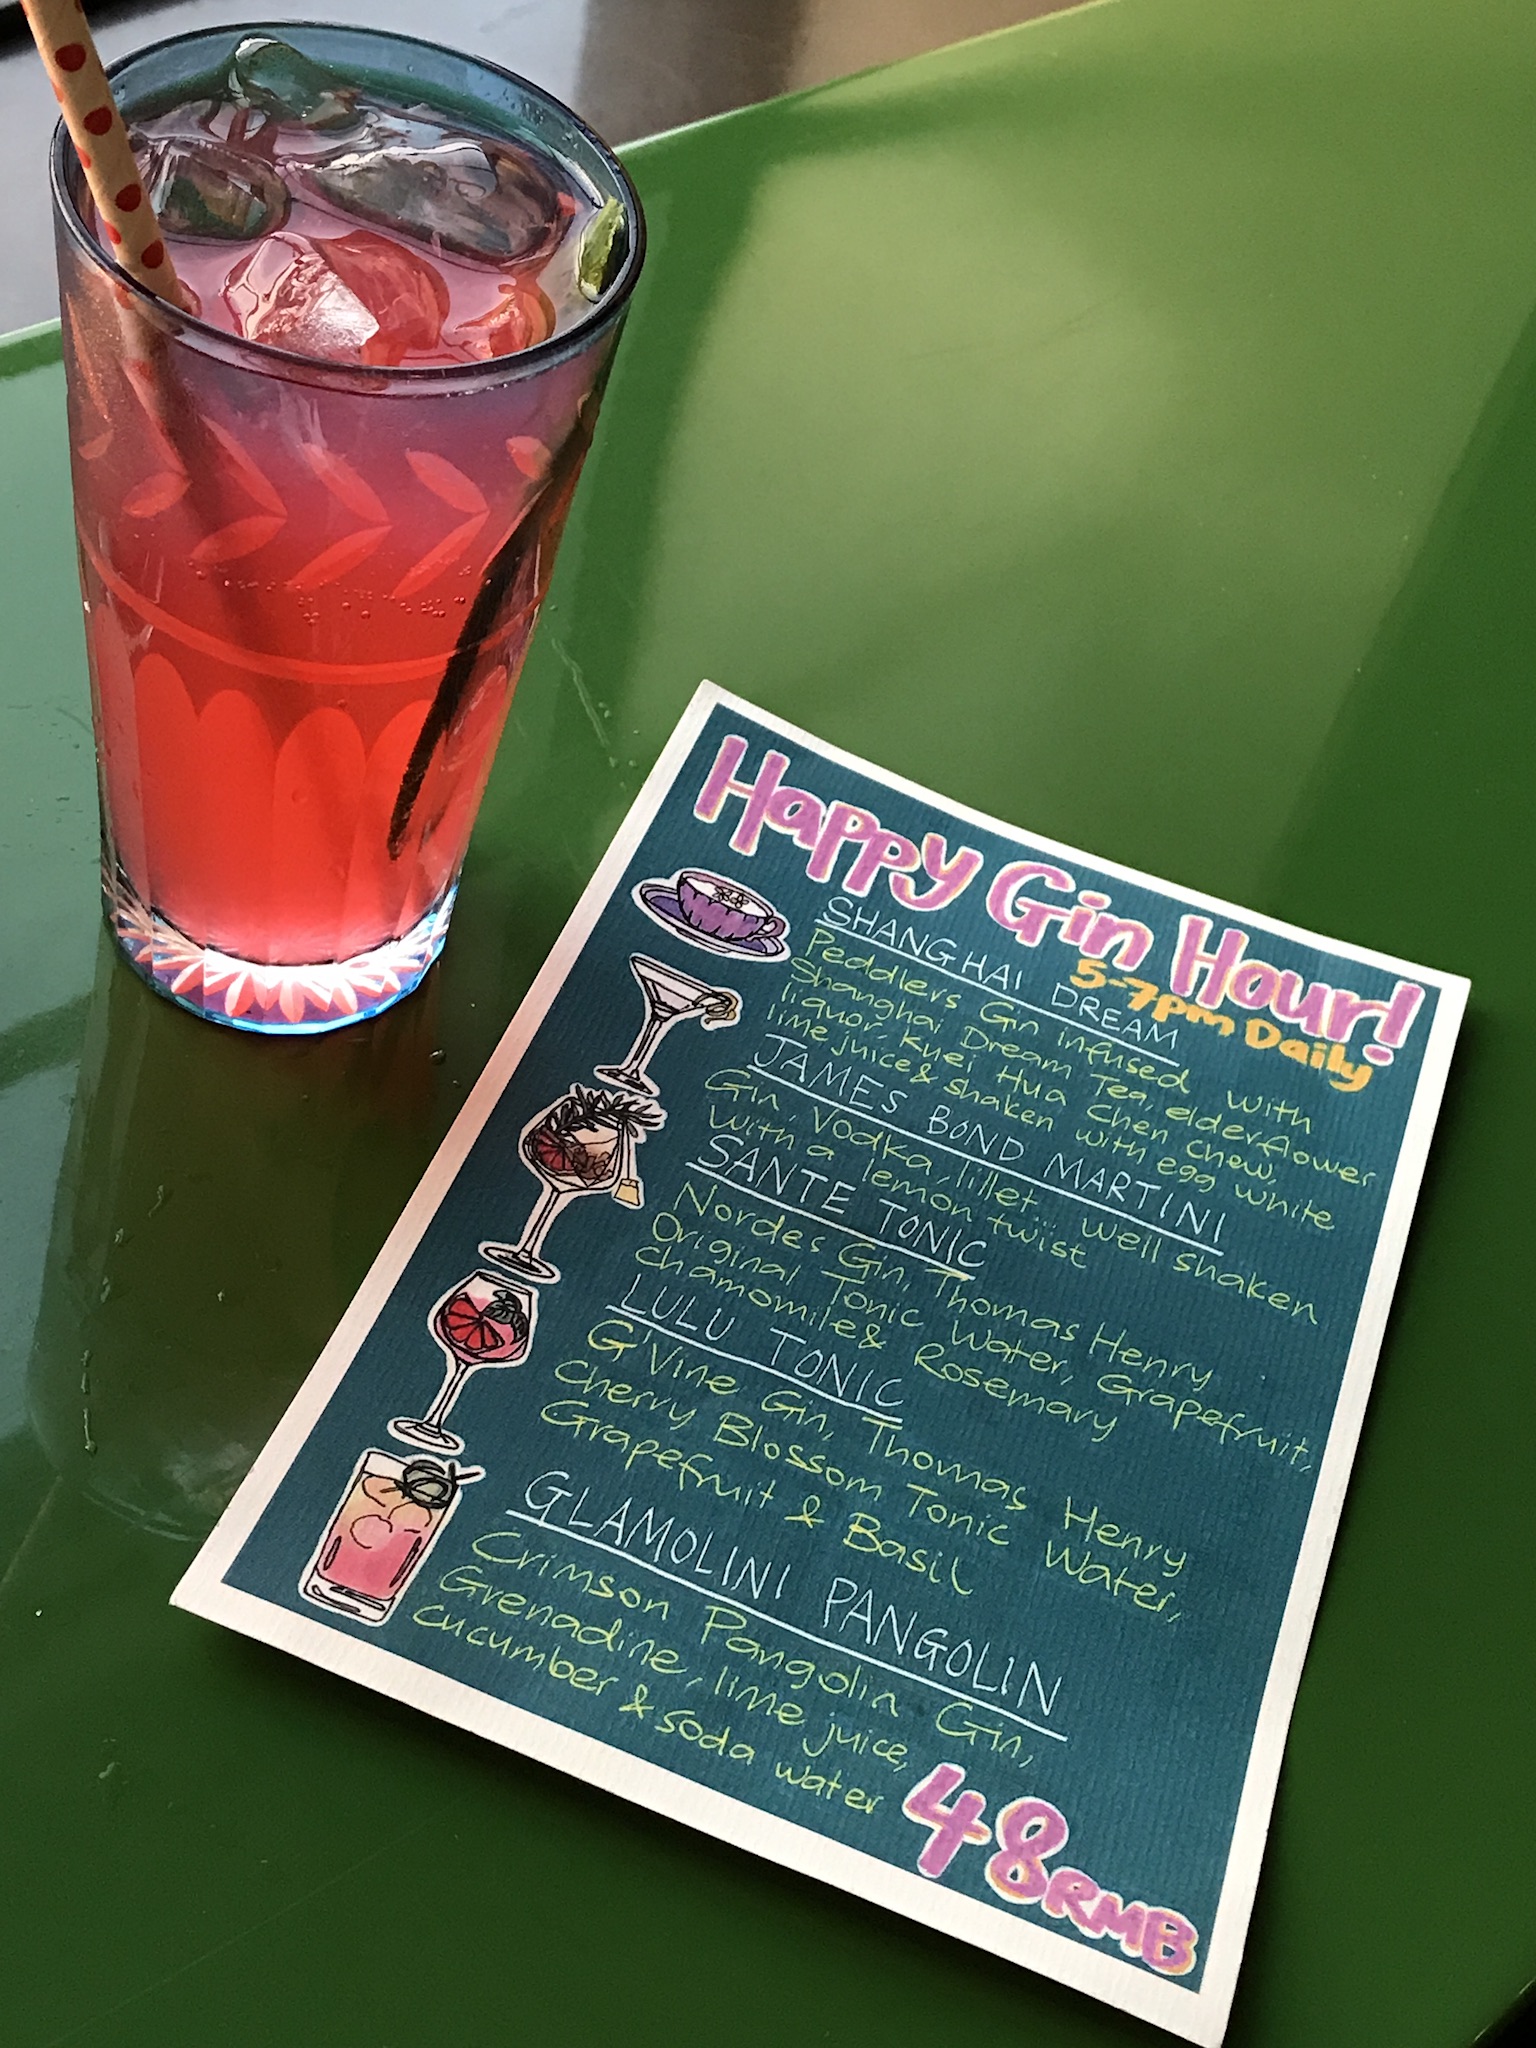 Happy Gin Hour!
5-7pm Daily
SHANGHAI DREAM
Peddlers Gin infused with
Shanghai Dream Tea, elderflower
liquor, Kuei Hua Chen Chew,
lime juice & shaken with egg white
JAMES BOND MARTINI
Gin, Vodka, lillet.. well shaken
with a lemon twist
SANTE TONIC
Nordes Gin, Thomas Henry
Original Tonic Water, Grapefruit,
Chamomile & Rosemary
LULU TONIC
G'Vine Gin, Thomas Henry
Cherry Blossom Tonic Water,
Grapefruit & Basil
GLAMOLINI PANGOLIN
Crimson Pangolin Gin,
Grenadine, lime juice,
cucumber & soda water
48RMB